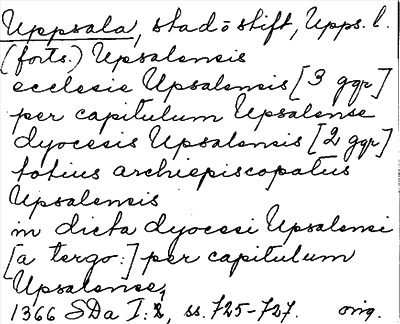 Uppsala, stad o stift, Upps. l.
(forts.) Upsalensis
ecclesie Upsalensis [3 ggr]
per capitulum Upsalense
dyocesis Upsalensis [2 ggr]
totius archiepiscopatus
Upsalensis
in dicta dyocesi Upsalensi
[a tergo:] per capitulum
Upsalense,
1366 SDa I:2, ss. 725-727. orig.